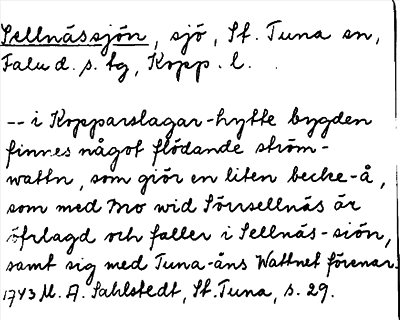 Sellnässjön, sjö, St. Tuna sn,
Falu d. s. tg, Kopp. l.
-- i Kopparslagar-hytte bygden
finnes något flödande ström-
wattn, som giör en liten becke-å,
som med Mo wid Sörsellnäs är
öfrlagd och faller i Sellnäs-siön,
samt sig med Tuna-åns Wattnet förenar.
1743 M. A. Sahlstedt, St. Tuna, s. 29.